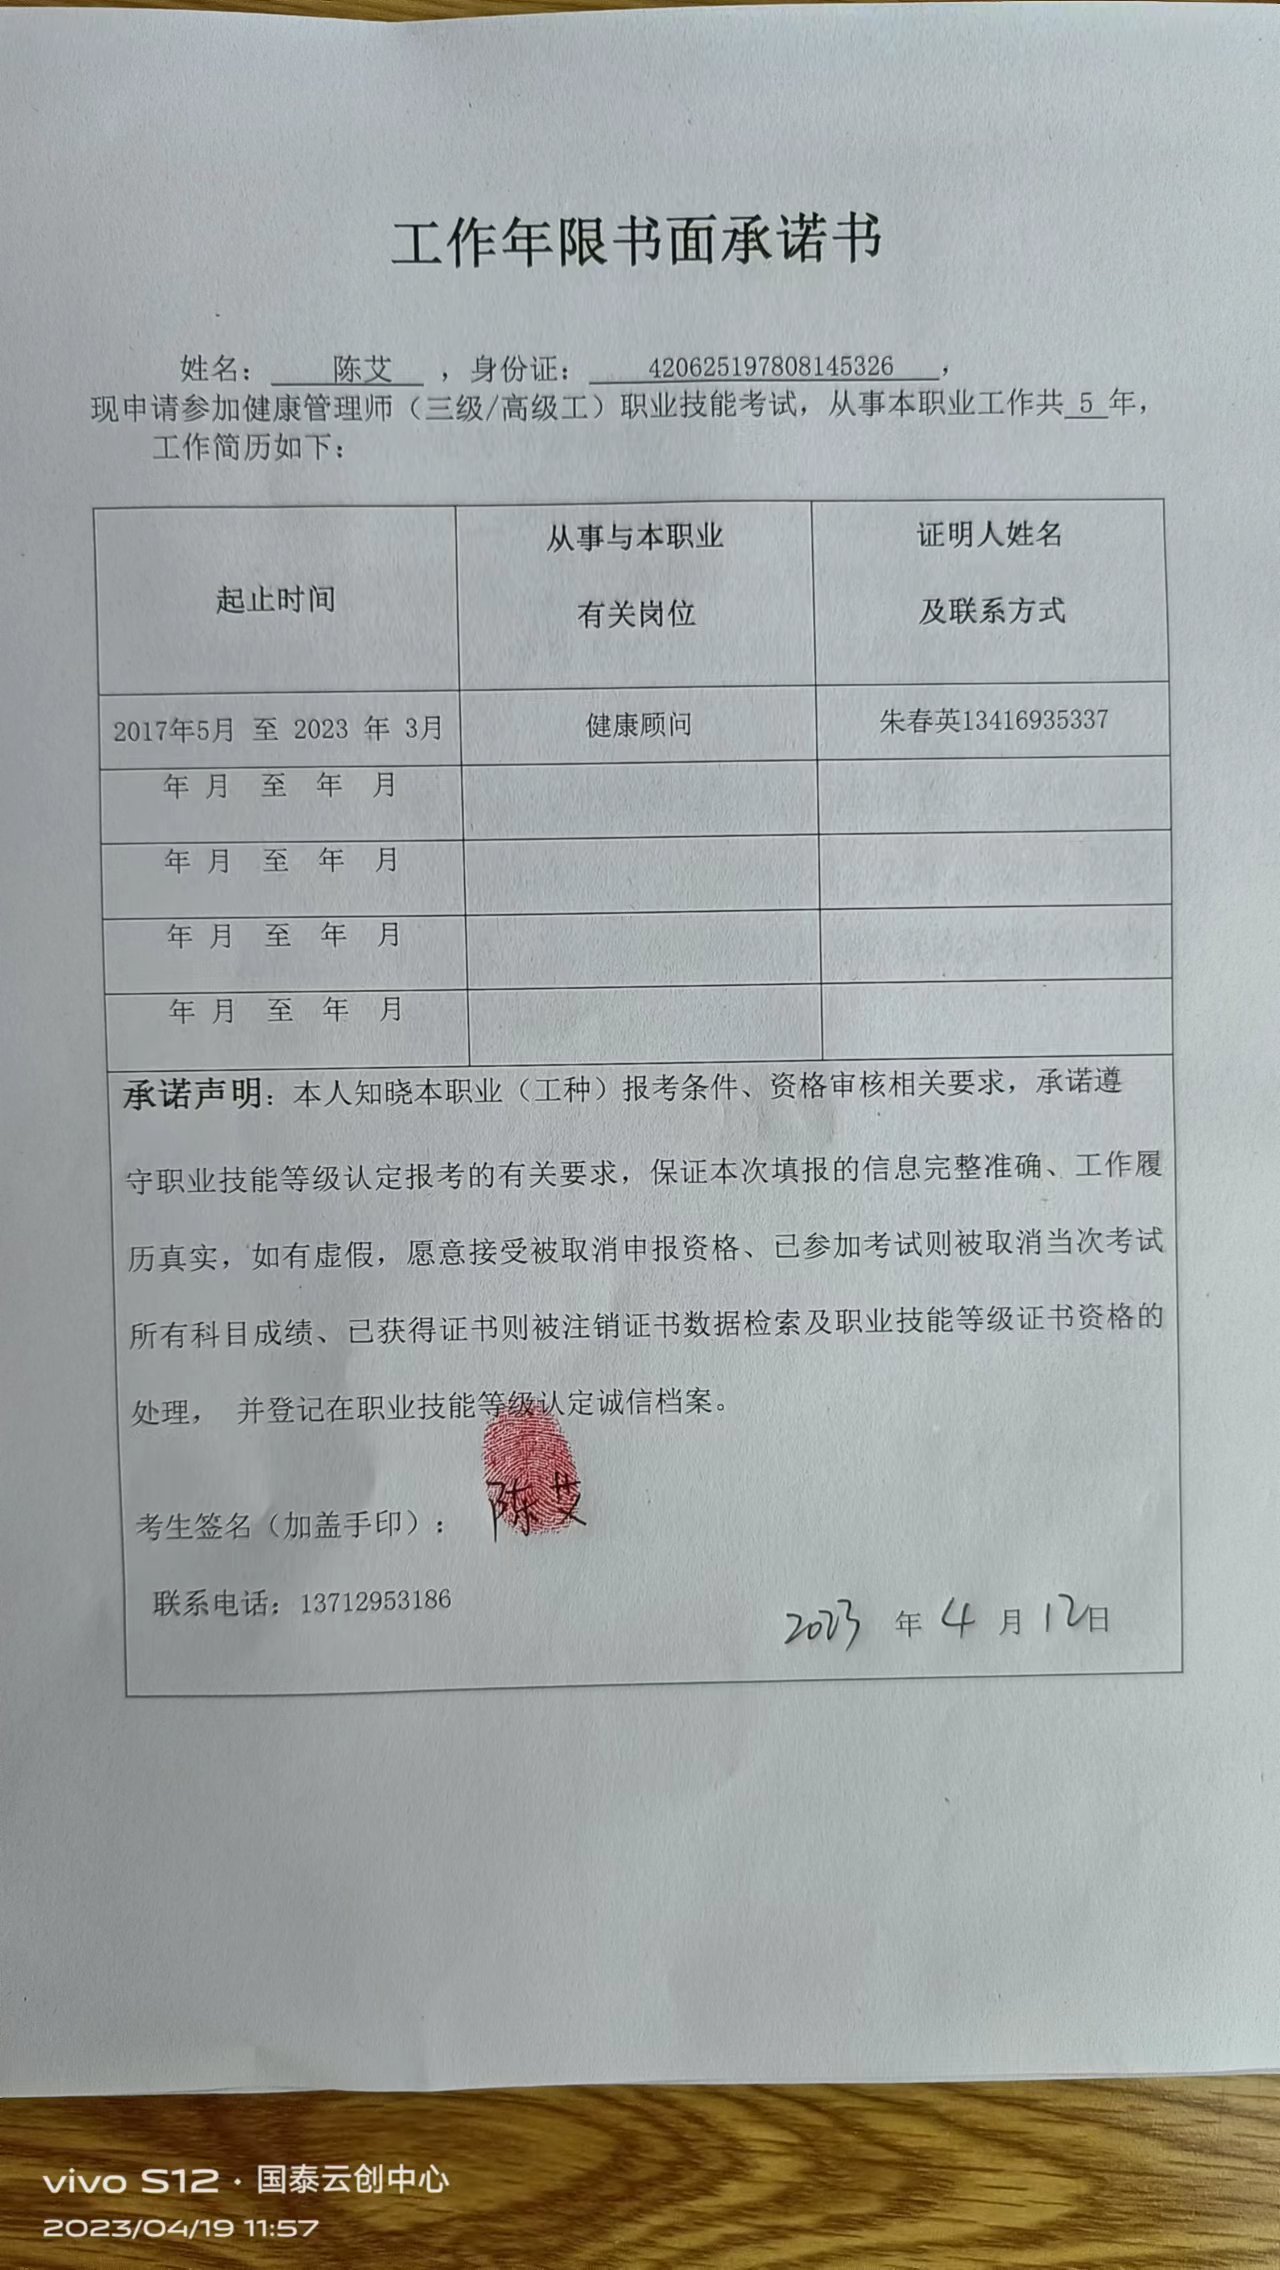 工作年限书面承诺书
姓名： 陈艾 ，身份证： 420625197808145326 ，
现申请参加健康管理师（三级/高级工）职业技能考试，从事本职业工作共 5 年，
工作简历如下：
起止时间
从事与本职业
有关岗位
证明人姓名
及联系方式
2017年5月 至 2023 年 3月 健康顾问 朱春英13416935337
年 月 至 年 月
年 月 至 年 月
年 月 至 年 月
年 月 至 年 月
承诺声明：本人知晓本职业（工种）报考条件、资格审核相关要求，承诺遵
守职业技能等级认定报考的有关要求，保证本次填报的信息完整准确、工作履
历真实，如有虚假，愿意接受被取消申报资格、已参加考试则被取消当次考试
所有科目成绩、已获得证书则被注销证书数据检索及职业技能等级证书资格的
处理， 并登记在职业技能等级认定诚信档案。
考生签名（加盖手印）： 陈艾
联系电话：13712953186
2023 年 4 月 12日
vivo S12 · 国泰云创中心
2023/04/19 11:57